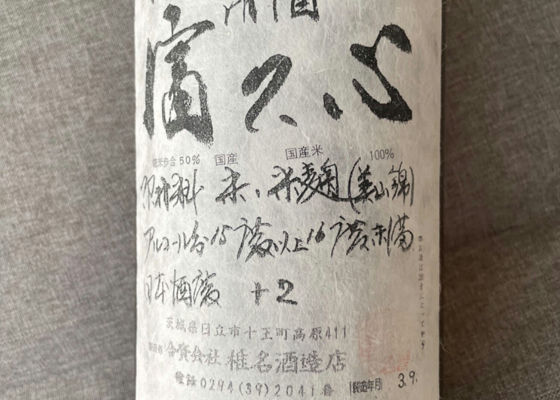 清酒
富久心
精米歩合50% 国産 国産米 100%
原材料 米、米麹(美山錦)
アルコール分15度以上16度未満
日本酒度 +2
茨城県日立市十王町高原411
製造者 合資会社椎名酒造店
電話0294(39)2041番 製造年月 3.9.